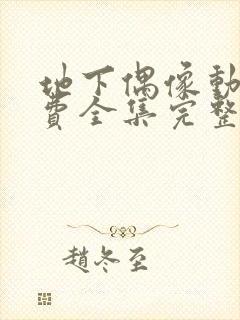 地下偶像動
費全集完整
趙冬至